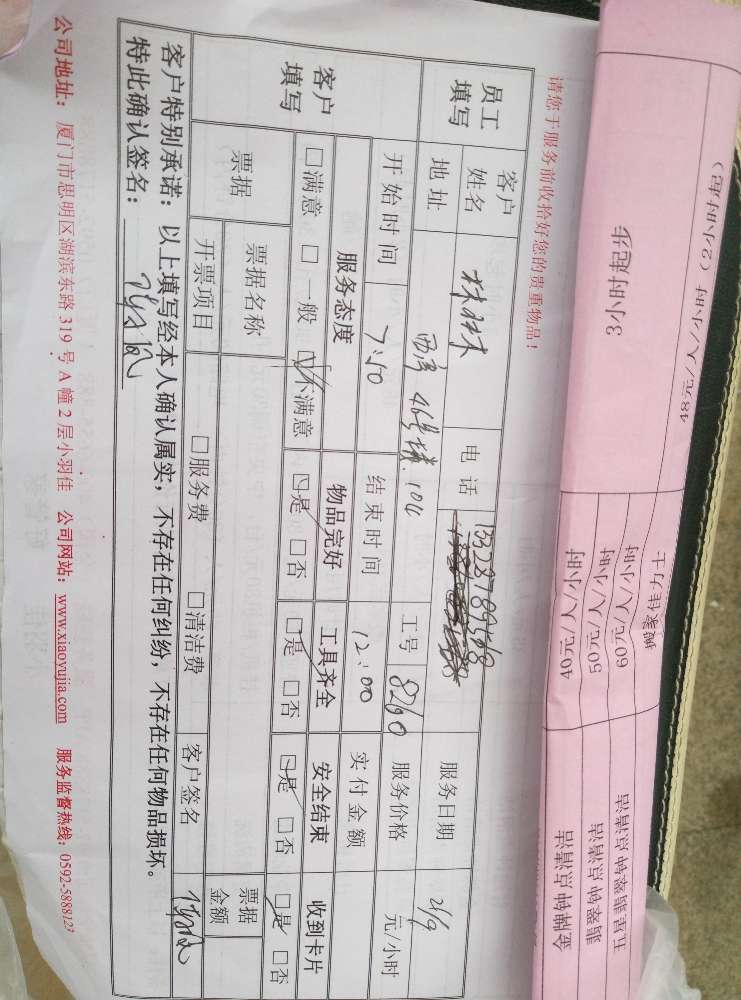 48元/人/小时（2小时起）
3小时起步
60元/人/小时
50元/人/小时
40元/人/小时
五星罗密钟点清洁
金牌钟点清洁
请您于服务前收拾好您的贵重物品！
员工填写
客户姓名
电话
13328789568
服务日期
21/9
地址
西湾 46号楼.104
工号
8290
服务价格
元/小时
开始时间
7:50
结束时间
12:00
实付金额
客户填写
服务态度
物品完好
工具齐全
安全结束
收到卡片
□满意 □一般 ☑不满意
☑是 □否
☑是 □否
☑是 □否
☑是 □否
票据
票据名称
票据金额
开票项目
□服务费
□清洁费
客户签名
客户特别承诺：以上填写经本人确认属实，不存在任何纠纷，不存在任何物品损坏。
特此确认签名：
公司地址：厦门市思明区湖滨东路 319 号 A 幢 2 层小羽佳 公司网站：www.xiaoyujia.com 服务监督热线：0592-5888123